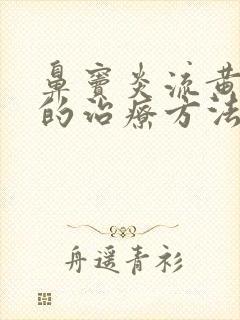 鼻窦炎流黄
的治疗方法
舟遥青衫